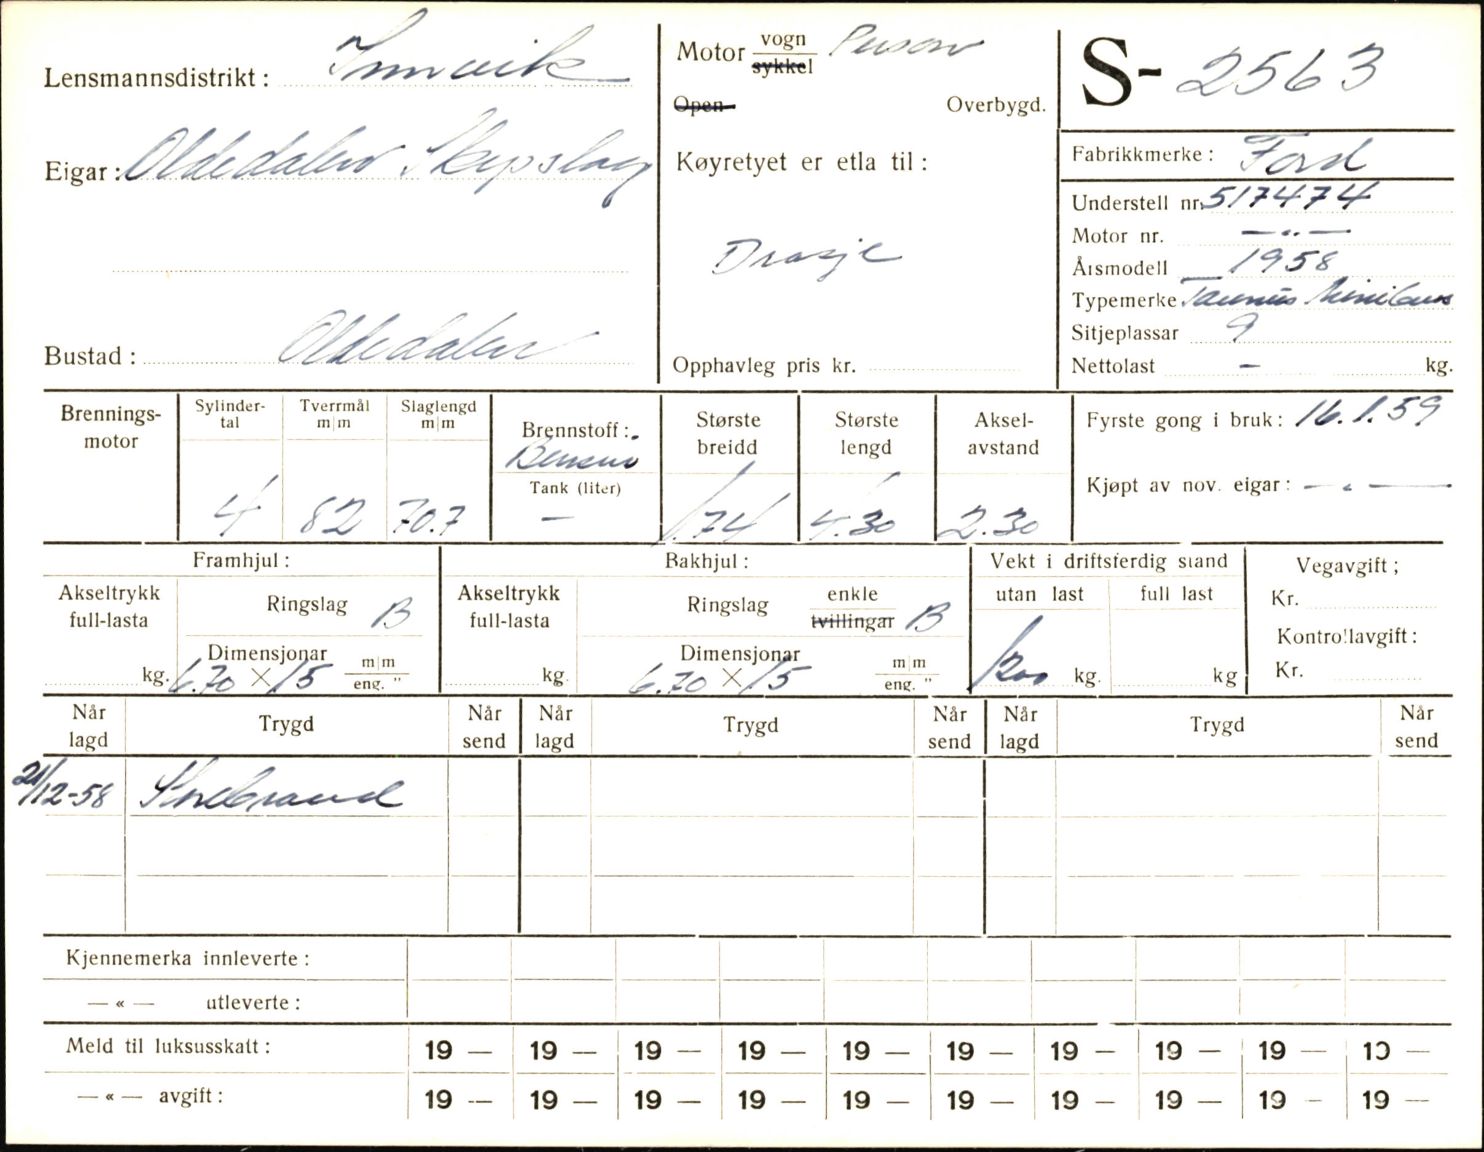 Lensmannsdistrikt: Innvik
Motor vogn Person
sykkel
S- 2563
Open Overbygd.
Fabrikkmerke: Ford
Eigar: Oldedalen Skysslag
Køyretyet er etla til:
Understell nr. 517474
Motor nr. —„—
Drosje
Årsmodell 1958
Typemerke Taunus Minibuss
Sitjeplassar 9
Bustad: Oldedalen
Opphavleg pris kr.
Nettolast — kg.
Brennings-
motor
Sylinder-
tal
Tverrmål
m|m
Slaglengd
m|m
Brennstoff:
Bensin
Tank (liter)
Største
breidd
Største
lengd
Aksel-
avstand
Fyrste gong i bruk: 16.1.59
Kjøpt av nov. eigar: —„—
4 82 70.7 — 1.74 4.30 2.30
Framhjul: Bakhjul: Vekt i driftsferdig stand Vegavgift;
Akseltrykk
full-lasta
kg.
Ringslag B
Dimensjonar
6.70 × 15 m|m
eng. "
Akseltrykk
full-lasta
kg.
Ringslag enkle
tvillingar B
Dimensjonar
6.70 × 15 m|m
eng. "
utan last full last
1200 kg. kg
Kr.
Kontrollavgift:
Kr.
Når
lagd
Trygd
Når
send
Når
lagd
Trygd
Når
send
Når
lagd
Trygd
Når
send
21/12-58 Storebrand
Kjennemerka innleverte:
— « — utleverte:
Meld til luksusskatt: 19 — 19 — 19 — 19 — 19 — 19 — 19 — 19 — 19 — 19 —
— « — avgift: 19 — 19 — 19 — 19 — 19 — 19 — 19 — 19 — 19 — 19 —